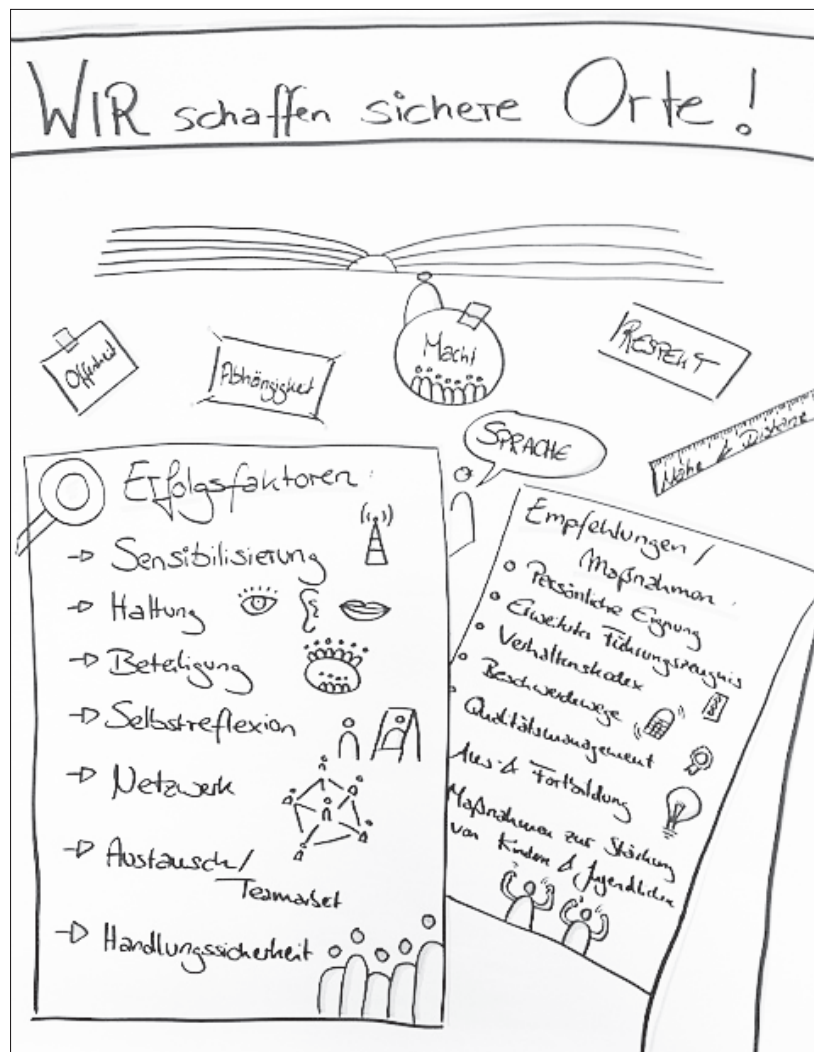 WIR schaffen sichere Orte!
Offenheit
Abhängigkeit
Macht
RESPEKT
SPRACHE
Nähe & Distanz
Erfolgsfaktoren:
→ Sensibilisierung
→ Haltung
→ Beteiligung
→ Selbstreflexion
→ Netzwerk
→ Austausch/
Teamarbeit
→ Handlungssicherheit
Empfehlungen/
Maßnahmen:
• Persönliche Eignung
• Erweitertes Führungszeugnis
• Verhaltenskodex
• Beschwerdewege
• Qualitätsmanagement
Aus- & Fortbildung
Maßnahmen zur Stärkung
von Kindern & Jugendlichen